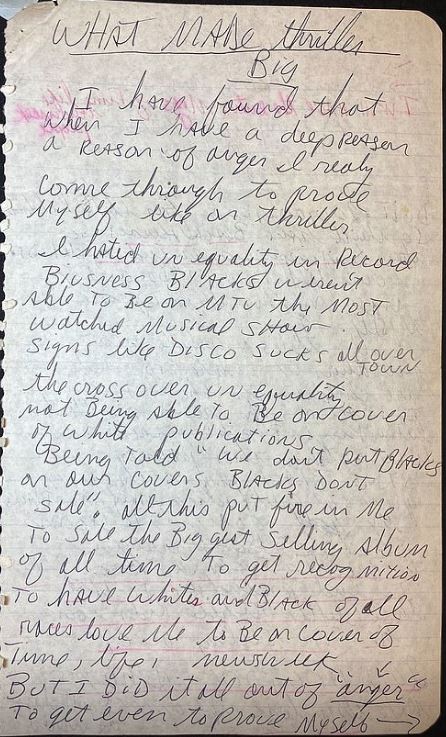 WHAT MADE thriller
BIG
I HAVE found that
when I have a deep REASON
a REASON of anger I realy
come through to prove
Myself like on thriller
I hated un equality in Record
Biusness Blacks weren't
able To Be on MTV the MOST
watched Musical SHow.
Signs like DISCO SUCKS all over
TOWN
the cross over un equality
not Being able To Be on cover
of white publications
Being Told "we don't put Blacks
on our covers Blacks DONT
Sale". all this put fire in Me
To Sale the Biggest Selling Album
of all time To get recognition
To have whites and Black of all
races love Me to Be on Cover of
Time, life, newswek
BUT I DiD it all out of "anger"
To get even to prove Myself →